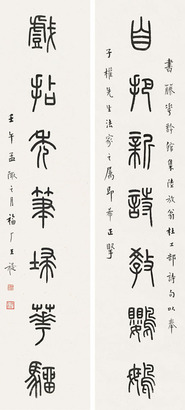 書藤花舲館集陸放翁杜工部詩句以奉
自把新詩教鸚鵡
子權先生法家之屬即希正擘
戲拈禿筆埽驊騮
壬午孟陬之月福厂王禔